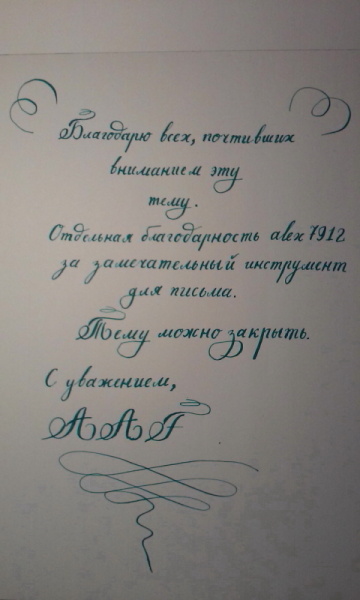 Благодарю всех, почтивших
вниманием эту
тему.
Отдельная благодарность alex 7912
за замечательный инструмент
для письма.
Тему можно закрыть.
С уважением,
AAF